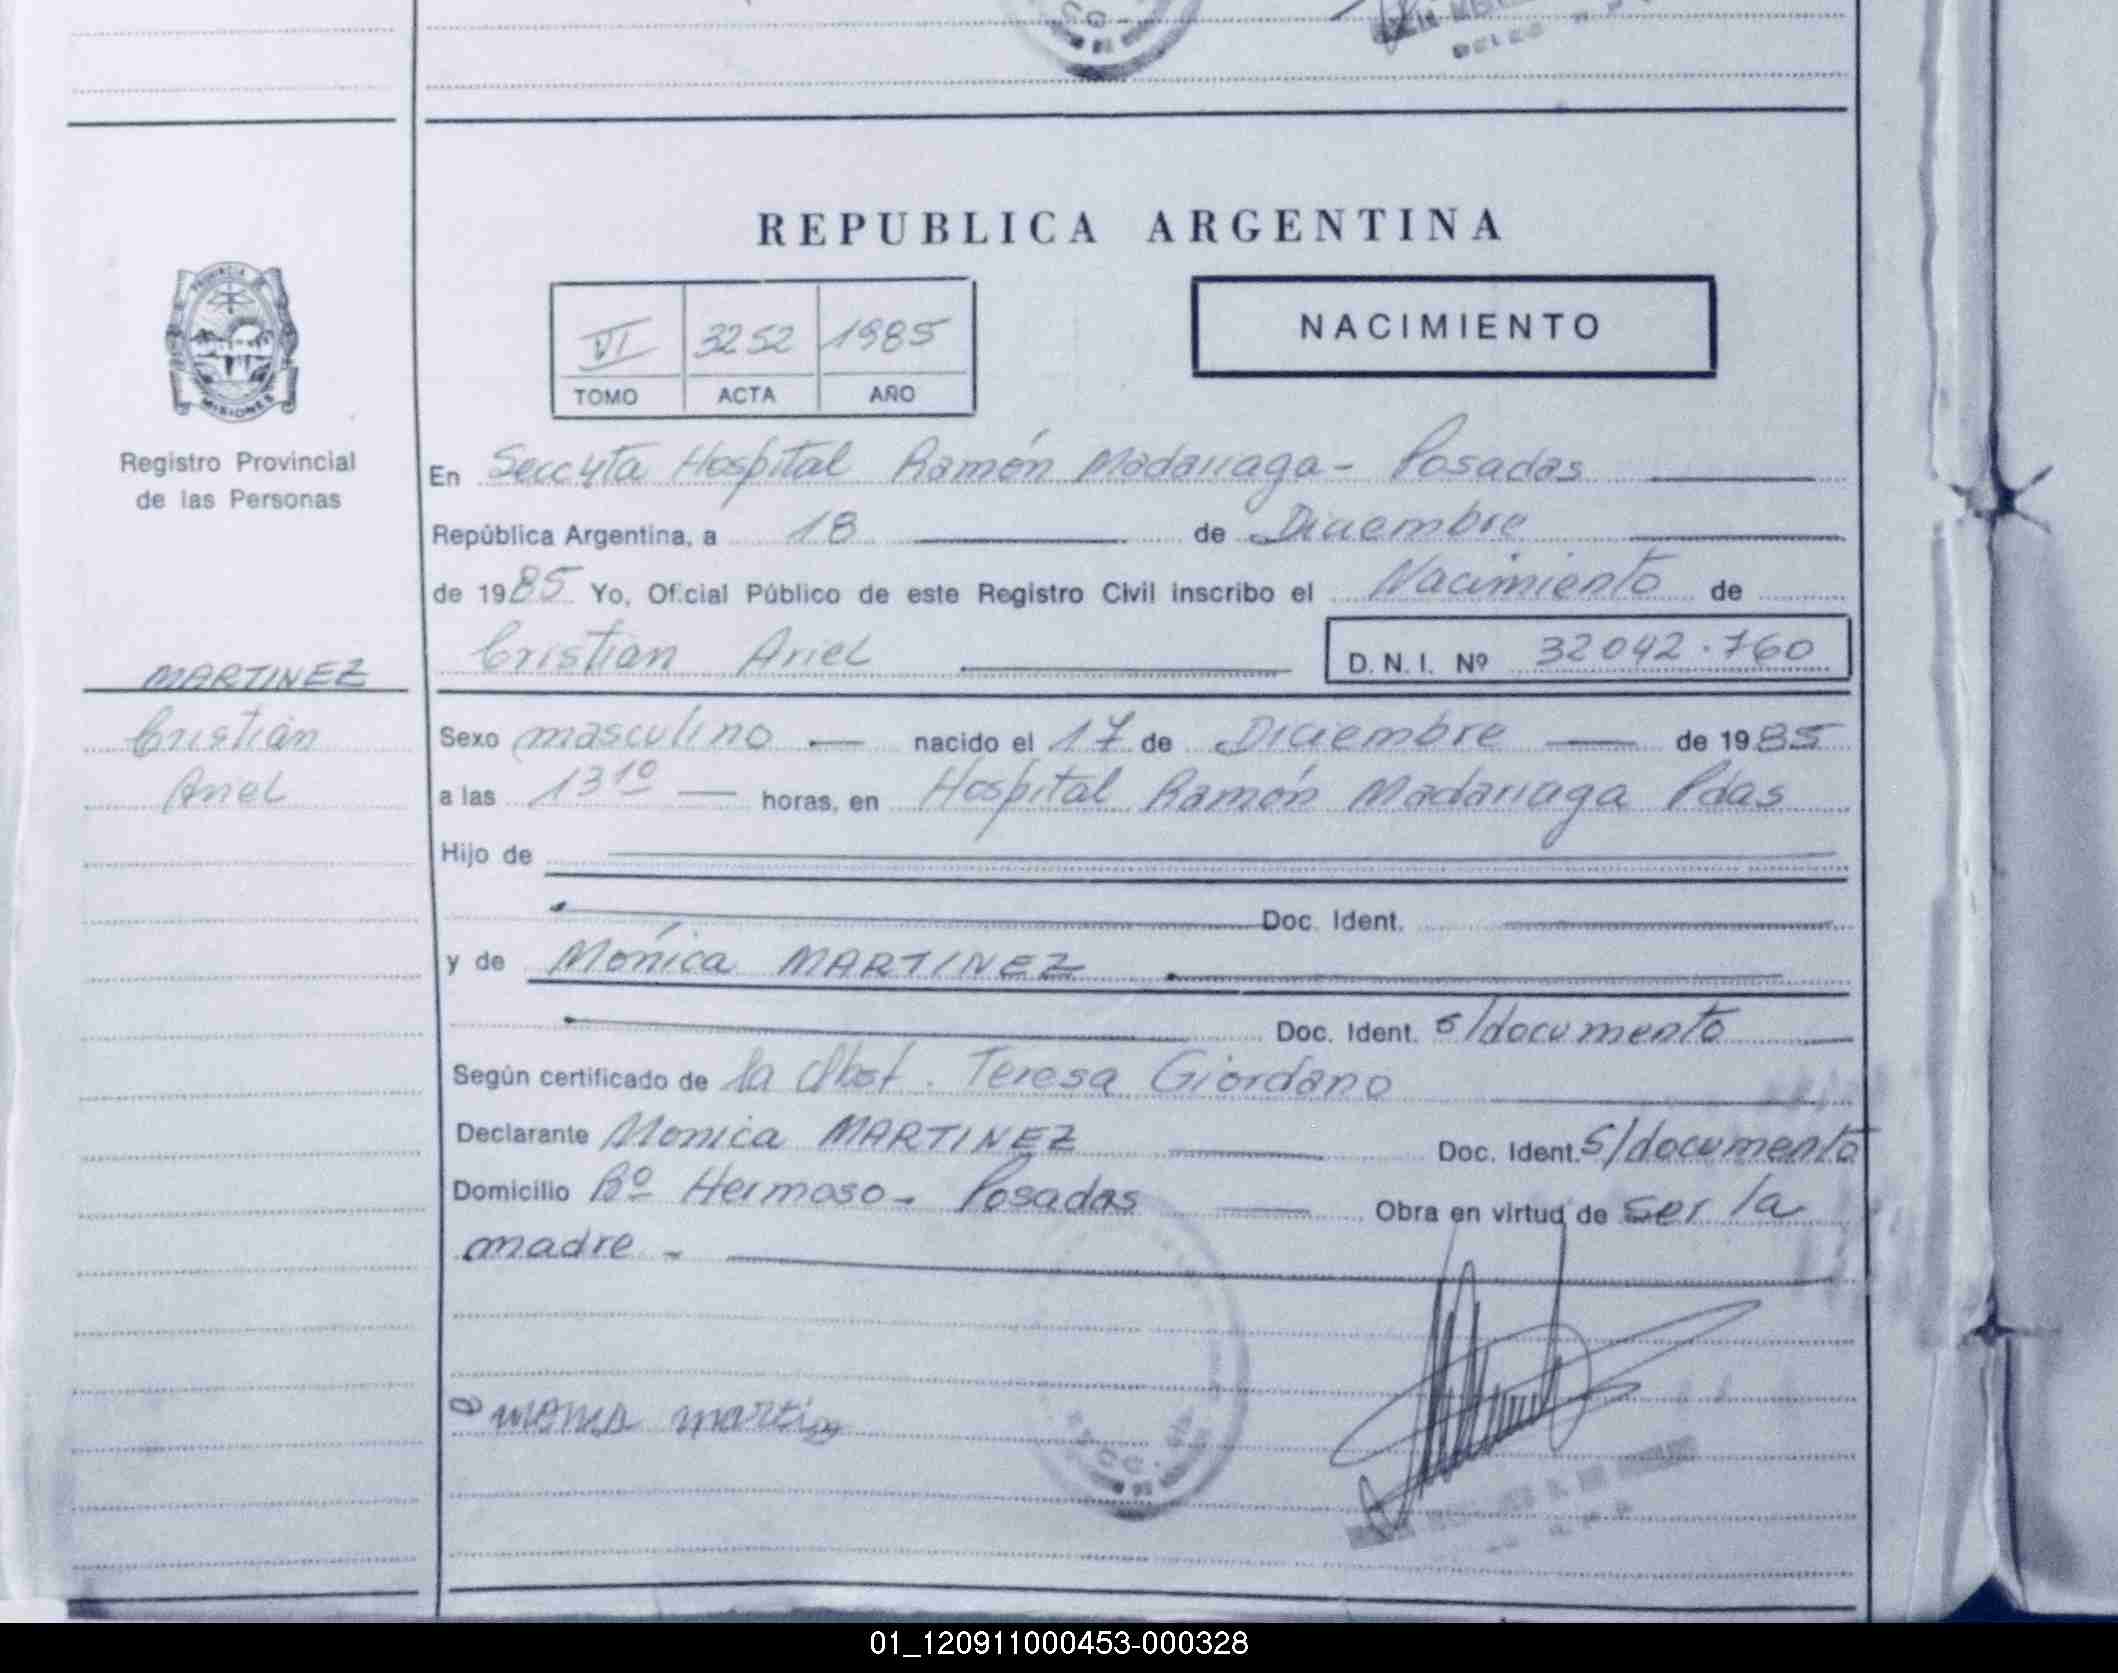 REPUBLICA ARGENTINA
PROVINCIA
MISIONES
Registro Provincial
de las Personas
VI 3252 1985
TOMO ACTA AÑO
NACIMIENTO
En Secc 4ta Hospital Ramón Madariaga - Posadas
República Argentina, a 18 de Diciembre
de 1985 Yo, Oficial Público de este Registro Civil inscribo el Nacimiento de
Cristian Ariel D. N. I. Nº 32042.760
MARTINEZ
Cristian
Ariel
Sexo masculino nacido el 17 de Diciembre de 1985
a las 13 10 horas, en Hospital Ramón Madariaga Pdas
Hijo de
Doc. Ident.
y de Mónica MARTINEZ
Doc. Ident. s/documento
Según certificado de la Obst. Teresa Giordano
Declarante Monica MARTINEZ Doc. Ident. S/documento
Domicilio Bº Hermoso - Posadas Obra en virtud de ser la
madre -
01_120911000453-000328